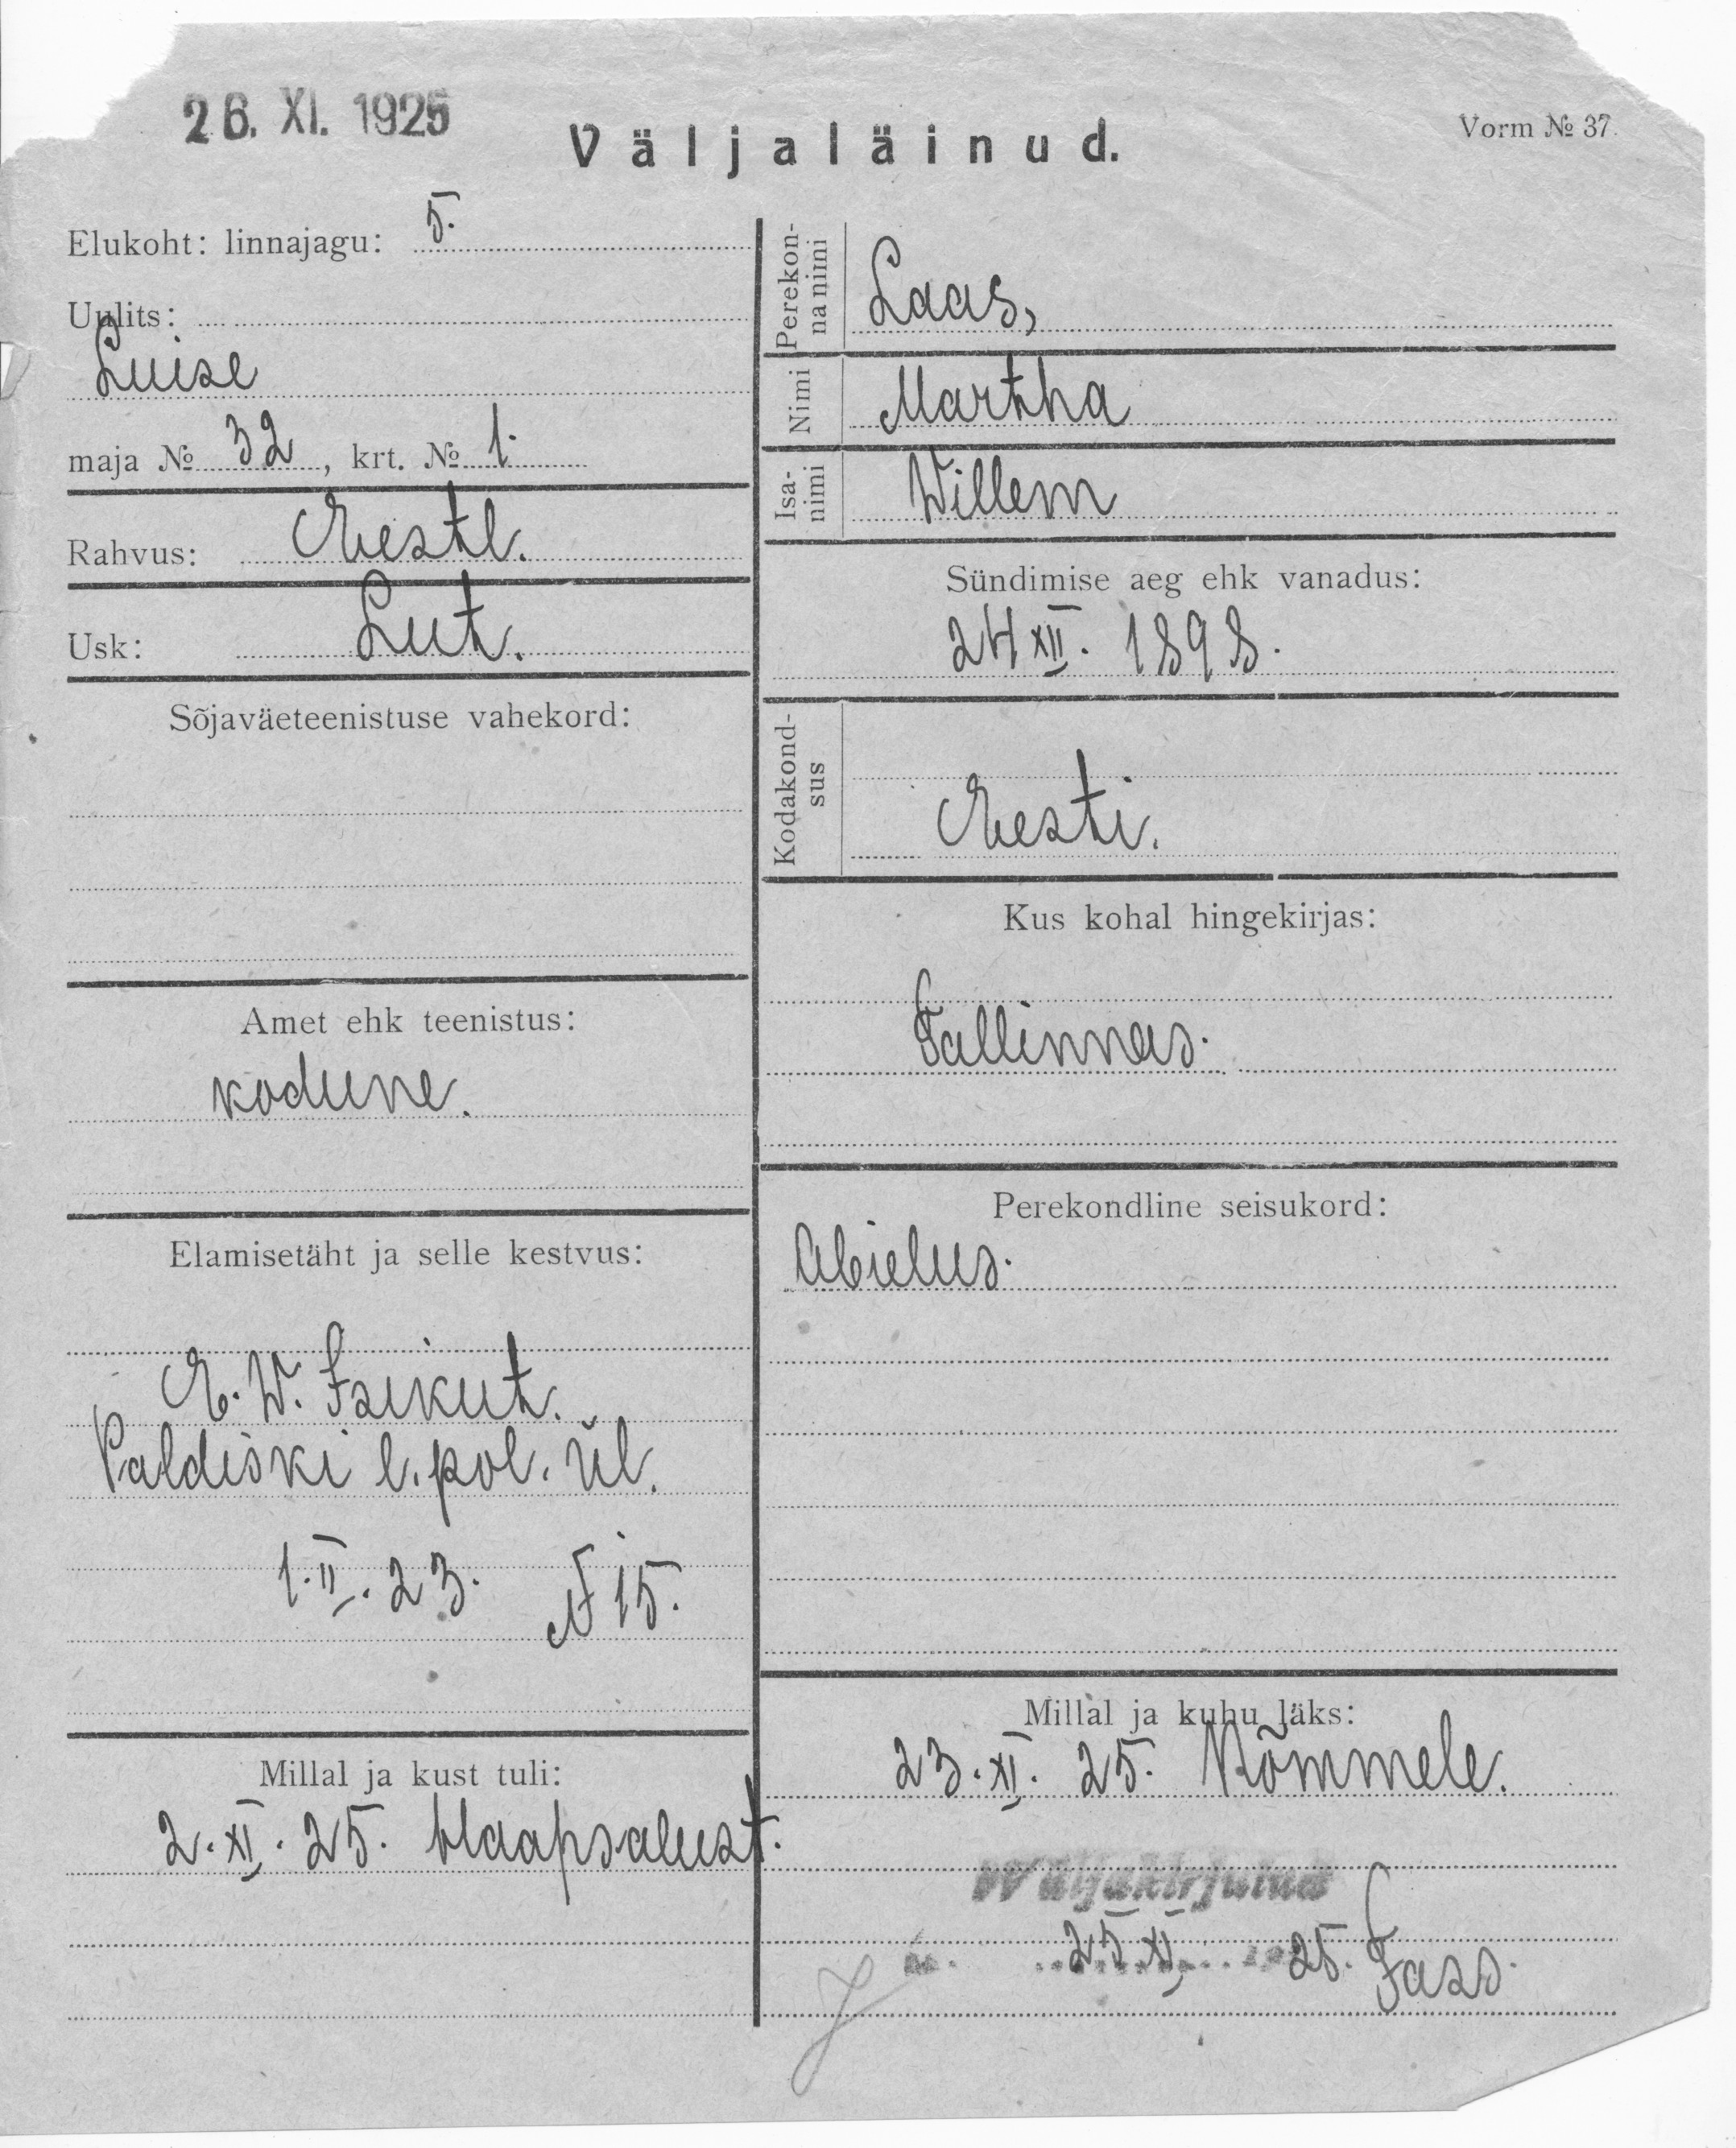 26. XI. 1925
Väljaläinud.
Vorm № 37.
Elukoht: linnajagu: 5.
Uulits:
Luise
maja № 32, krt. № 1.
Rahvus: Eestl.
Usk: Lut.
Sõjaväeteenistuse vahekord:
Amet ehk teenistus:
kodune.
Elamisetäht ja selle kestvus:
E. W. Isikut.
Paldiski l. pol. ül.
1. II. 23. N 15.
Millal ja kust tuli:
2. XI. 25. Haapsalust.
Perekonna nimi
Laas,
Nimi
Martha
Isa-
nimi
Willem
Sündimise aeg ehk vanadus:
24 XII. 1898.
Kodakond-
sus
Eesti.
Kus kohal hingekirjas:
Tallinnas.
Perekondline seisukord:
Abielus.
Millal ja kuhu läks:
23. XI. 25. Nõmmele.
Wäljakirjutud
25 XI 25.